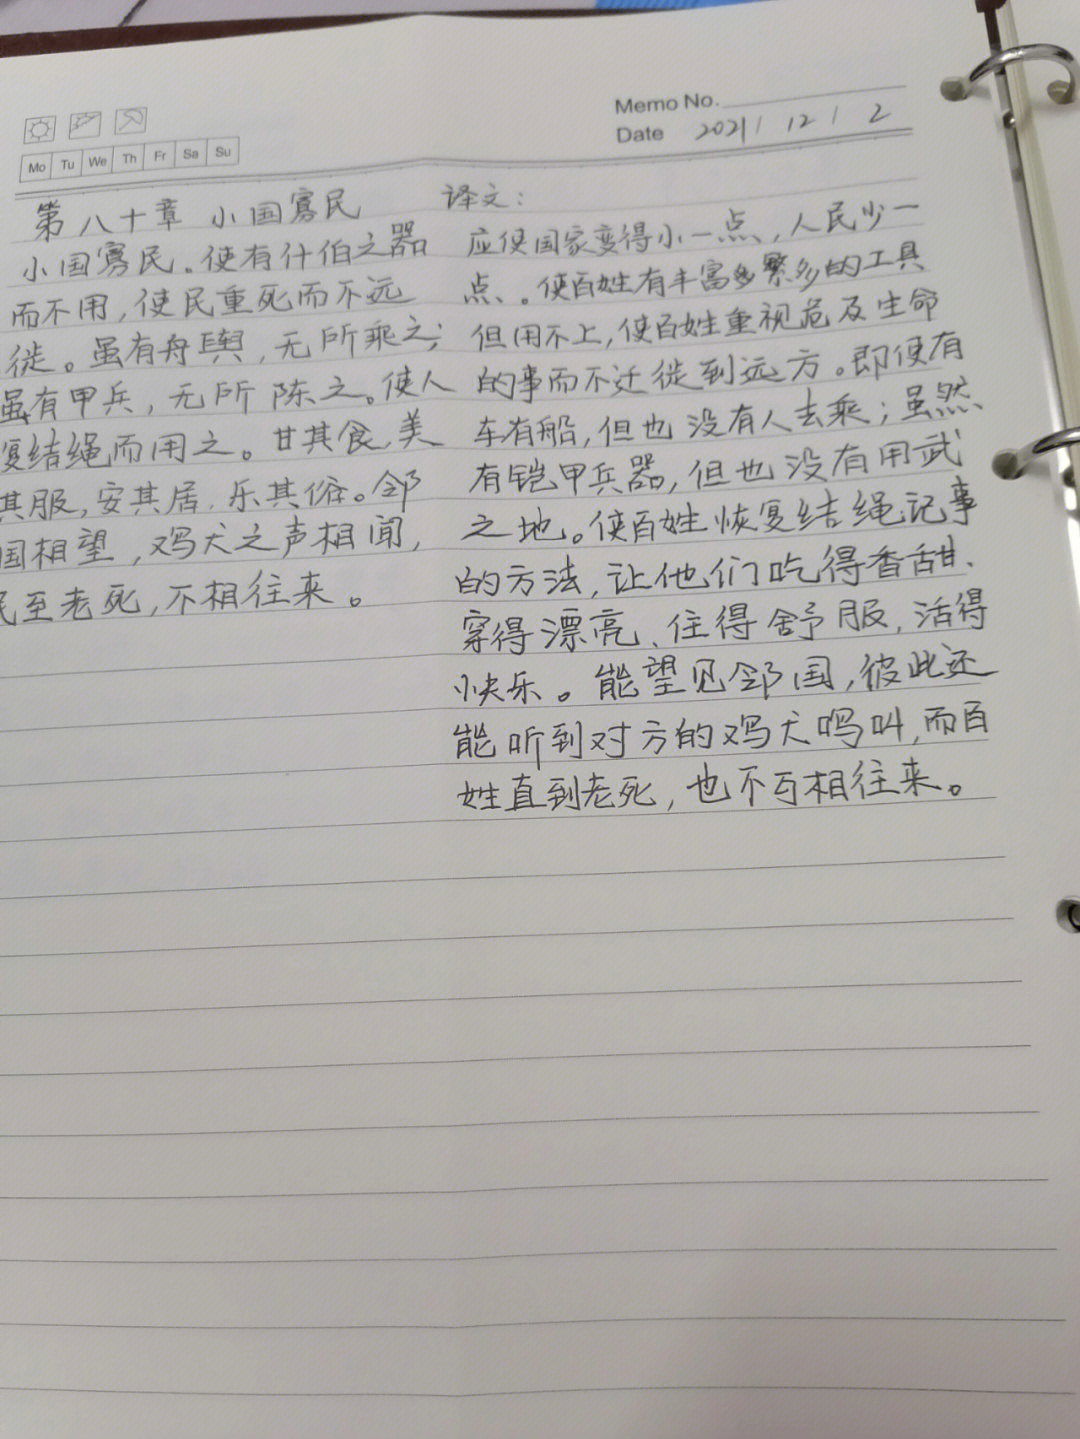 Memo No.
Date 2021 / 12 / 2
Mo Tu We Th Fr Sa Su
第八十章 小国寡民
小国寡民。使有什伯之器
而不用，使民重死而不远
徙。虽有舟舆，无所乘之；
虽有甲兵，无所陈之。使人
复结绳而用之。甘其食，美
其服，安其居，乐其俗。邻
国相望，鸡犬之声相闻，
民至老死，不相往来。
译文：
应使国家变得小一点，人民少一
点、。使百姓有丰富繁多的工具
但用不上，使百姓重视危及生命
的事而不迁徙到远方。即使有
车有船，但也没有人去乘；虽然
有铠甲兵器，但也没有用武
之地。使百姓恢复结绳记事
的方法，让他们吃得香甜、
穿得漂亮、住得舒服，活得
快乐。能望见邻国，彼此还
能听到对方的鸡犬鸣叫，而百
姓直到老死，也不互相往来。